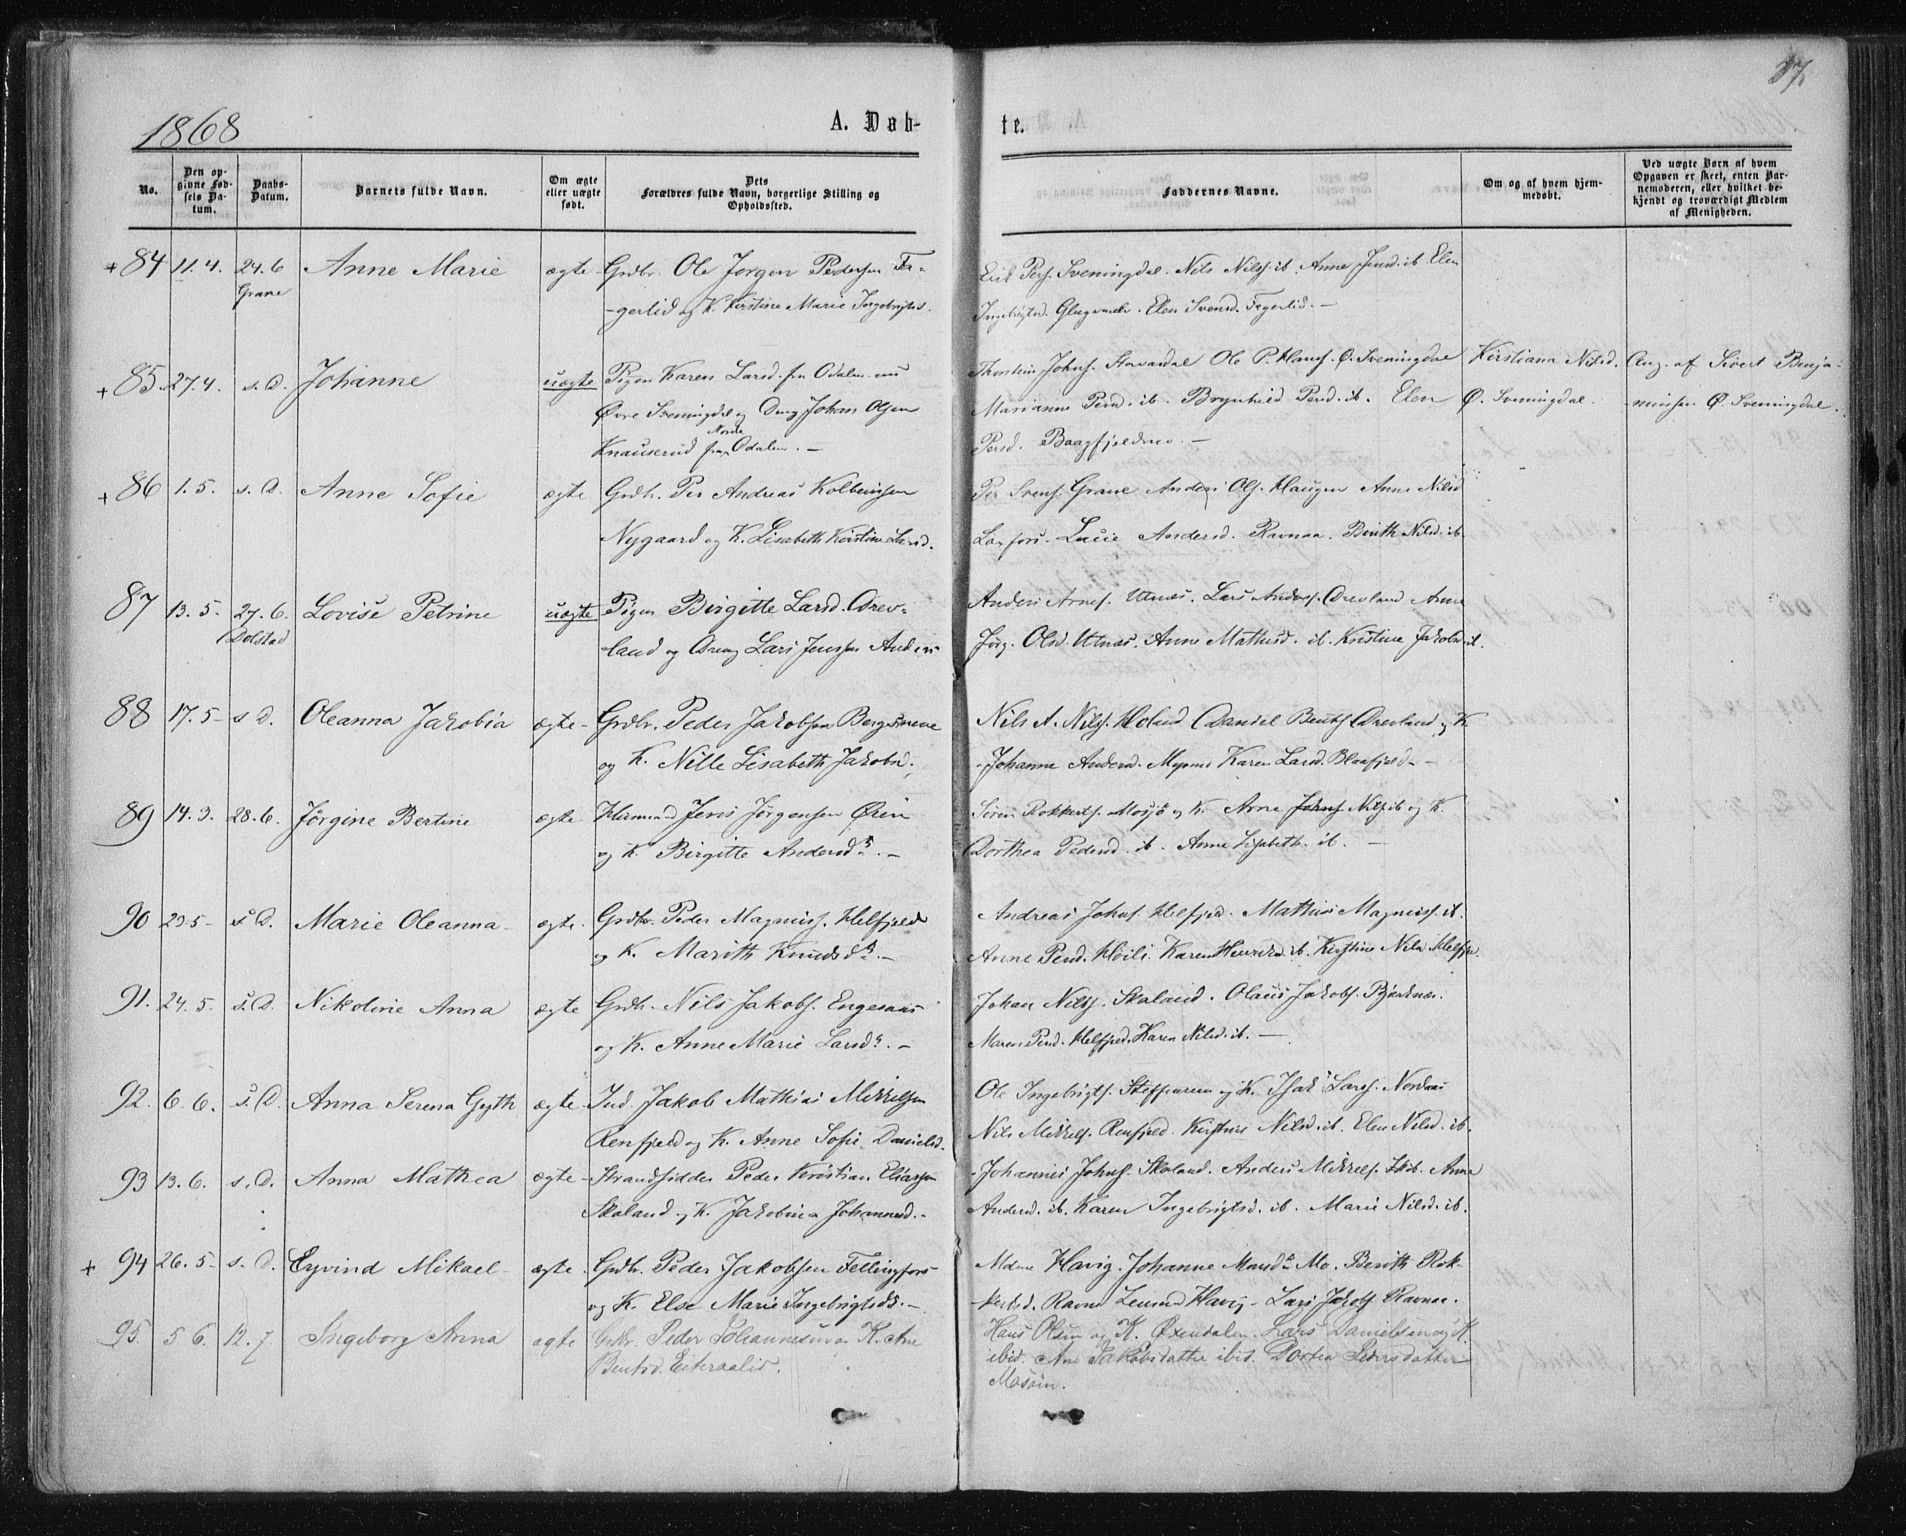 1868
A. Døb-
te.
37.
No.
Den op-
givne Fød-
sels Da-
tum.
Daabs-
Datum.
Barnets fulde Navn.
Om ægte
eller uægte
født.
Dets
Forældres fulde Navn, borgerlige Stilling og
Opholdssted.
Faddernes Navne.
Om og af hvem hjem-
medøbt.
Ved uægte Børn af hvem
Opgaven er skeet, enten Bar-
nemoderen, eller hvilket be-
kjendt og troværdigt Medlem
af Menigheden.
+ 84 11.4. 24.6 Anne Marie ægte Grdbr. Ole Jørgen Pedersen Fa-
Grane
-gerlid og K. Kirstine Marie Ingebrigtsd.
Erik Pers. Sveningdal. Nils Nilss. ib. Anne Jensd. ib Elen
Ingebrigtsd. Elen Svensd. Fagerlid. -
+ 85 27.4. s. D. Johanne uægte Pigen Karen Larsd. fra Odalen nu
Øvre Sveningdal og Dreng Johan Olsen
Knauserud fra Nordre Odalen. -
Thorsten Johns. Stavasdal Ole P. Hans. Ø. Sveningdal
Marianne Persd. ib. Brynhild Persd. ib. Elen
Persd. Baagfjeldmo. -
Kirstiana Nilsd.
Ø. Sveningdal.
Ang. af Sivert Benja-
minsen Ø. Sveningdal.
+ 86 1.5. s. D. Anne Sofie ægte Grdbr. Per Andreas Kolbeinsen
Nygaard og K. Lisabeth Kirstine Larsd.
Per Svens. Grane Anders Ols. Haugen Anne Nilsd
Laxfors. Lucie Andersd. Ravnaa. Berith Nilsd. ib.
87 13.5. 27.6. Lovise Petrine uægte Pigen Birgitte Larsd. Drev-
Dolstad
land og Dreng Lars Jensen Anders
Anders Arnes. Utnæs. Lars Anders. Drevland Anne
Jørg. Olsd. Utnæs. Anne Mathisd. ib. Kristine Jakobsd. ib.
88 17.5- s D. Oleanna Jakobia ægte- Grdbr. Peder Jakobsen Bergsneve
og K. Nille Lisabeth Jakobsd.
Nils A. Nilss. Holand Daniel Bents. Drevland og K
Johanne Andersd. Karen Larsd. Blaafjeld. -
89 14.3. 28.6. Jørgine Bertine ægte Jens Jørgensen Ørin
og K. Birgitte Andersd. -
Søren Rokkerts. Mosjø og K. Arne Nils. ib og K.
Dorthea Pedersd. ib. Anne Lisabeth. ib. -
90 23.5- s. D. Marie Oleanna- ægte. Grdbr. Peder Magniss. Helfjeld
og K. Marith Knudsd. -
Andreas Johns. Helfjed. Mathias Magniss. ib.
Anne Persd. Høili. Karen ib. Kirstine Nilsd. Helfje.
91. 24.5- s. D. Nikoline Anna ægte Grdbr. Nils Jakobs. Engesaas
og K. Anne Marie Larsd. -
Johan Nilss. Skaland. Olaus Jakobs. Bjørknæs.
Maren Persd. Helfjed. Karen Nilsd. ib. -
92. 6.6. s. D. Anna Serena Gyth ægte- Ind. Jakob Mathias Mikkelsen
Renfjeld og K. Anne Sofie Danielsd.
Ole Ingebrigts. og K. Isak Larss. Nordaas
Nils Mikkels. Renfjeld. Kirstine Nilsd. ib. Elen Nilsd. ib.
93 13.6. s. D. Anna Mathea ægte- Strandsidder Peder Kristian Eliassen
Skaland og K. Jakobina Johannesd. -
Johannes Johns. Skaland. Anders Mikkels. ib. Anne
Andersd. ib. Karen Ingebrigtsd. ib. Marie Nilsd. ib.
+ 94 26.5- s. D. Eyvind Mikael- ægte. Grdbr. Peder Jakobsen Fellingfors
og K. Else Marie Ingebrigtsd. -
Mdme Havig. Johanne Mo. Berith Rok-
kertsd. Ravnaa Havig- Lars Jakobs. Ravnaa.
95. 5.6. 12.7 Ingeborg Anna ægte Grdbr. Peder Johannesen og K. Ane
Bentsd. Eiteraalid.
Hans Olsen og K. Øxendalen. Lars Danielsen og K.
ibid. Ane Jakobsdatter ibid. Dortea Pedersdatter
Mosøin.